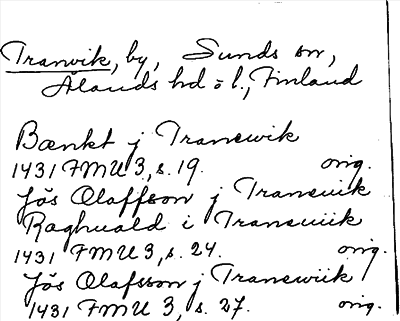 Tranvik, by, Sunds sn,
Ålands hd o l., Finland
Bænkt j Tranewik
1431 FMU 3, s. 19. orig.
Jös Olaffson j Traneuik
Raghuald i Traneuiik
1431 FMU 3, s. 24. orig.
Jös Olafsson j Tranewiik
1431 FMU 3, s. 27. orig.